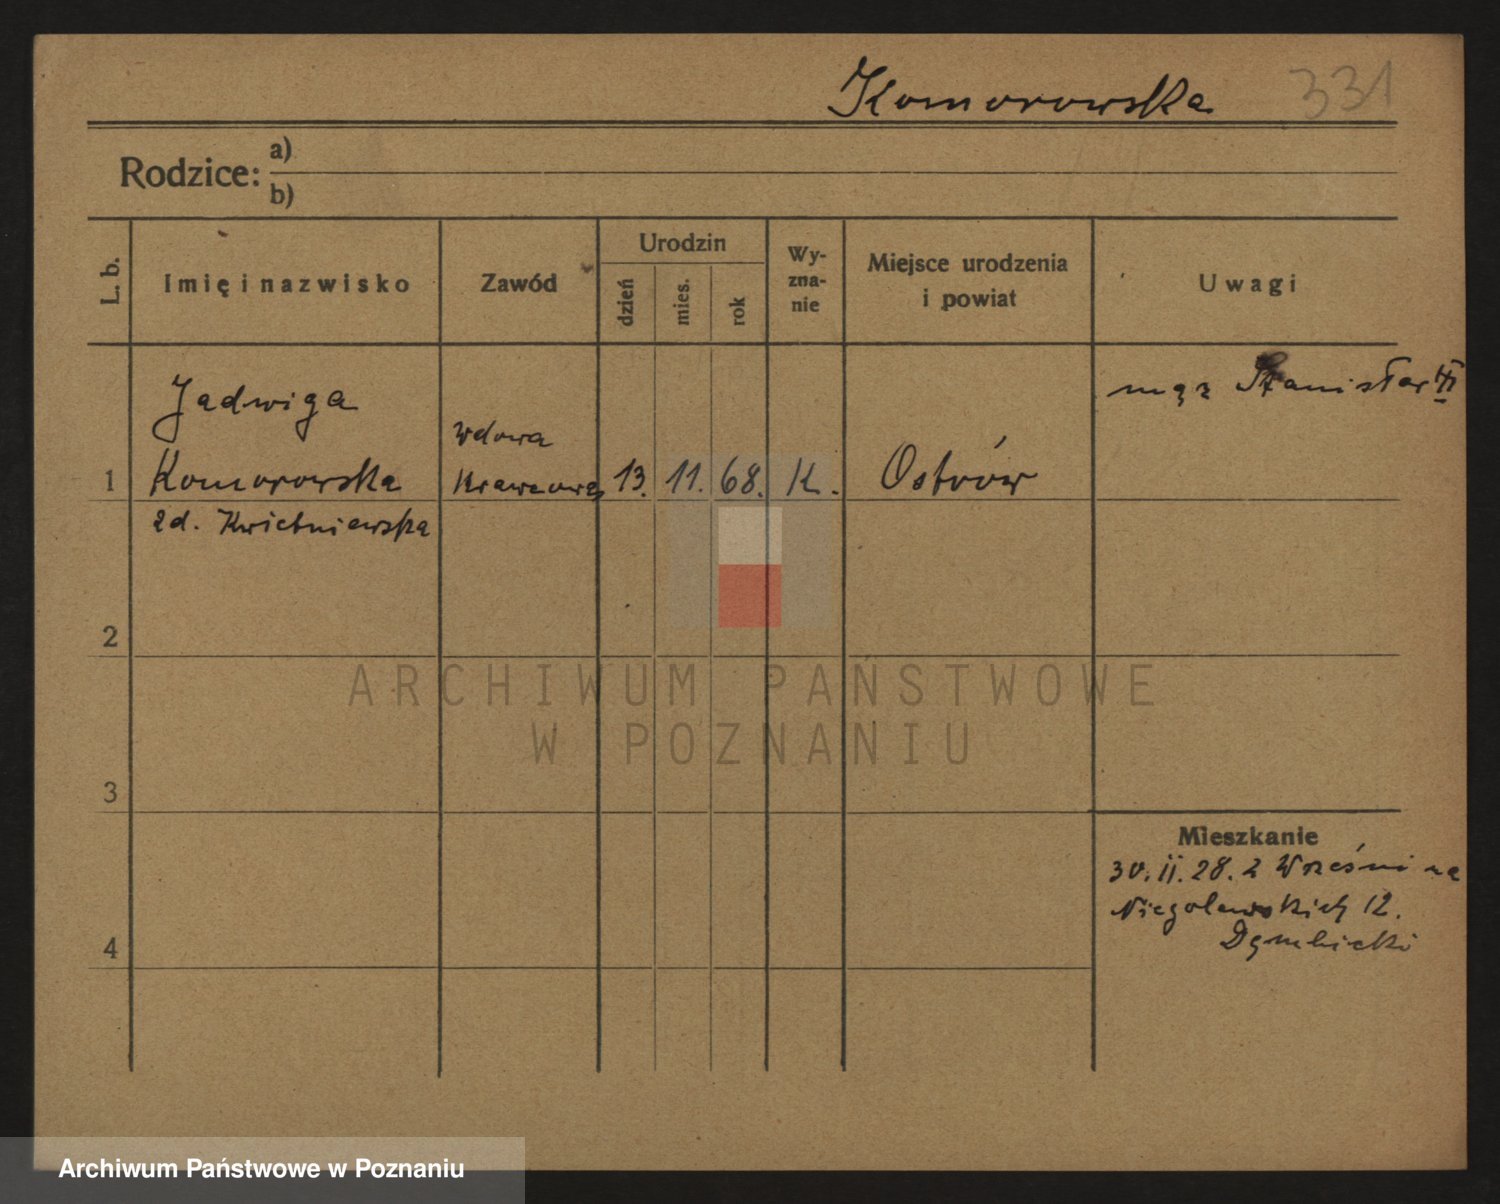 Komorowska 331
Rodzice: a)
b)
L. b.
Imię i nazwisko
Zawód
Urodzin
dzień
mies.
rok
Wy-
zna-
nie
Miejsce urodzenia
i powiat
Uwagi
Jadwiga
mąż Stanisław
wdowa
1 Komorowska krawcowa 13. 11. 68. K. Ostrów
zd. Kwietniewska
2
ARCHIWUM PAŃSTWOWE
W POZNANIU
3
Mieszkanie
30. 11. 28. z Wrześni na
Niegolewskich 12.
4
Archiwum Państwowe w Poznaniu